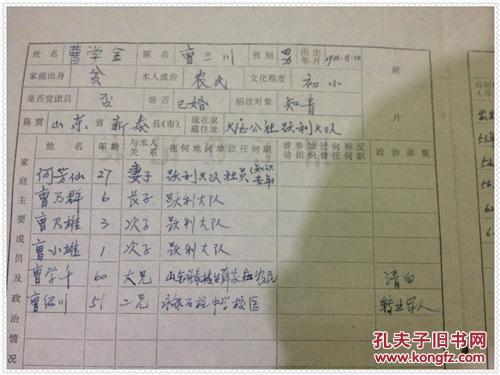 姓名 曹学金 原名 曹三川 性别 男 出生年月
家庭出身 贫 本人成份 农民 文化程度 初小 照
是否党团员 否 婚否 已婚 招收对象 知青
籍贯 山东省新泰县(市) 现在家庭住址 公社跃利大队 片
家庭主要成员及政治情况
姓名 年龄 与本人关系 在何地何单位任何职 曾参加过何种反动组织曾任何职 政治面貌
何芳仙 27 妻子 跃利大队社员(知识青年)
曹乃群 6 长子 跃利大队
曹乃雄 3 次子 跃利大队
曹小雄 1 次子 跃利大队
曹学千 60 大兄 农民 清白
曹绍川 51 二兄 中学校医 转业军人
孔夫子旧书网
www.kongfz.com